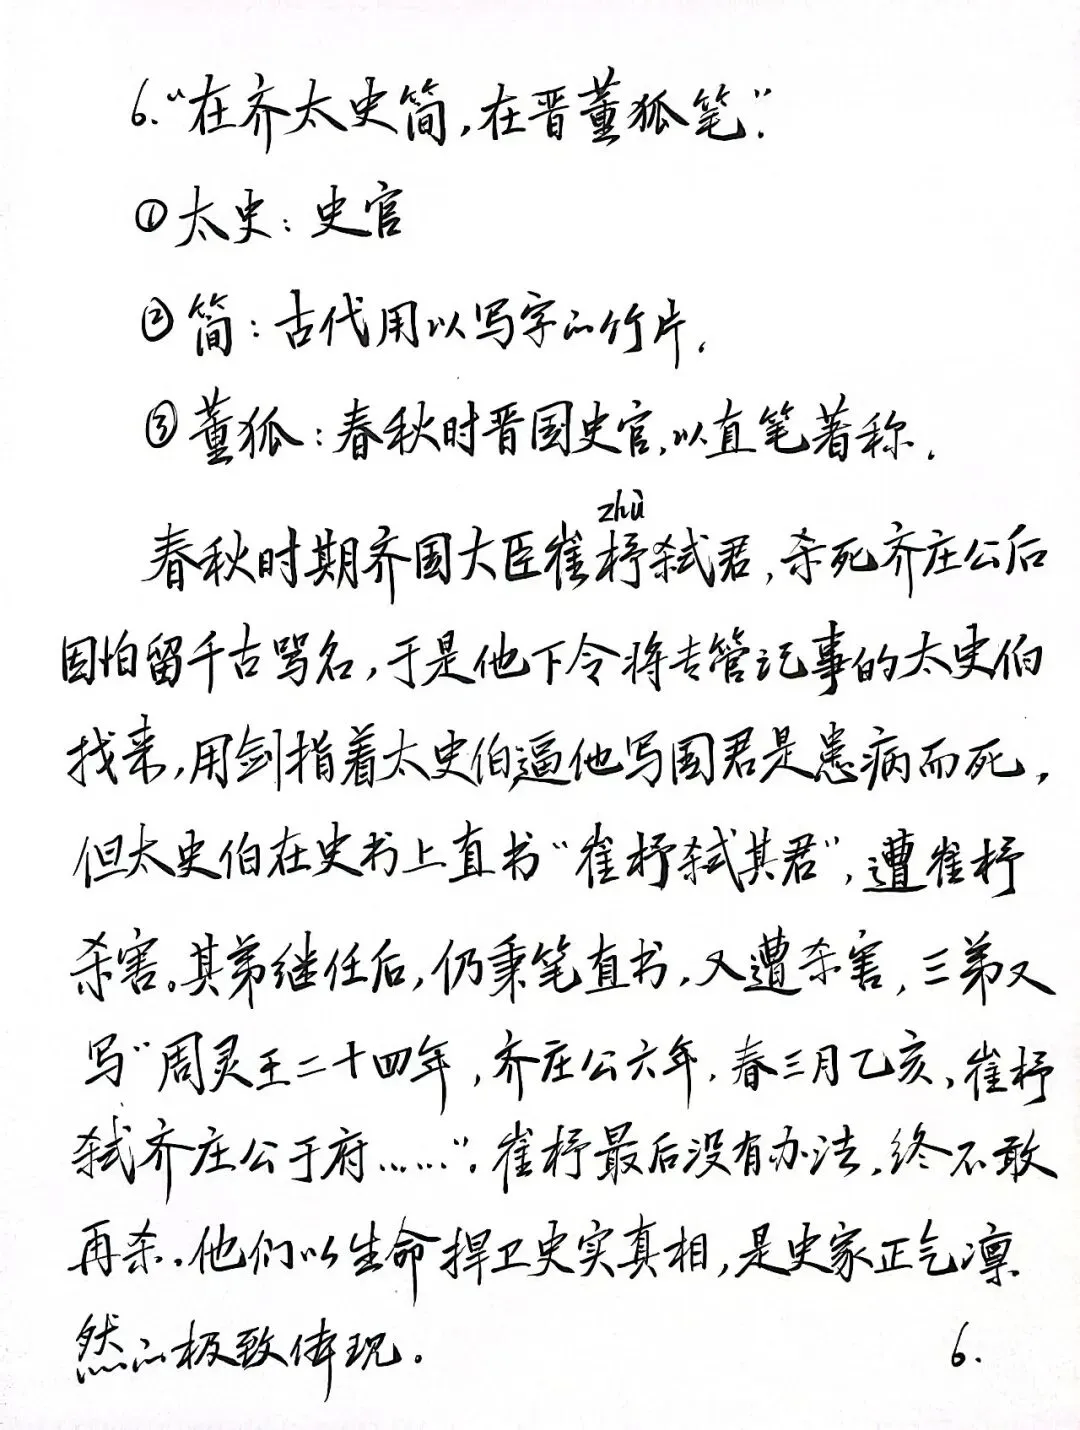 6.“在齐太史简,在晋董狐笔”.
①太史:史官
②简:古代用以写字的竹片.
③董狐:春秋时晋国史官,以直笔著称.
zhù
春秋时期齐国大臣崔杼弑君,杀死齐庄公后
因怕留千古骂名,于是他下令将专管记事的太史伯
找来,用剑指着太史伯逼他写国君是患病而死,
但太史伯在史书上直书“崔杼弑其君”,遭崔杼
杀害。其弟继任后,仍秉笔直书,又遭杀害,三弟又
写“周灵王二十四年,齐庄公六年,春三月乙亥,崔杼
弑齐庄公于府……”.崔杼最后没有办法,终不敢
再杀.他们以生命捍卫史实真相,是史家正气凛
然的极致体现.
6.